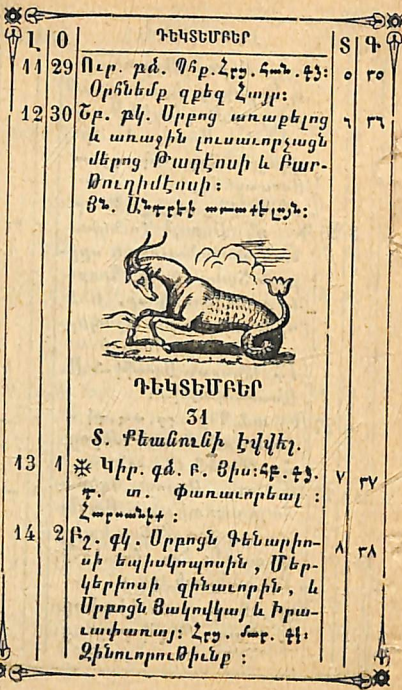 Լ Օ ԴԵԿՏԵՄԲԵՐ Տ Գ
11 29 Ուր. բձ. Պհք. Հրց. Հան. գյ: ٥ ٣٥
Օրհնեմք զքեզ Հայր:
12 30 Շբ. բկ. Սրբոց առաքելոց ٦ ٣٦
և առաջին լուսաւորչացն
մերոց Թադէոսի և Բար-
թուղիմէոսի:
Յն. Անդրէի առաքելոյն:
ԴԵԿՏԵՄԲԵՐ
31
Տ. Քեանունի էվվել.
13 1 Կիր. գձ. Բ. Յիս: ٧ ٣٧
Փառաւորեալ :
Հարսանիք :
14 2 Բշ. գկ. Սրբոցն Գենարիո- ٨ ٣٨
սի եպիսկոպոսին, Մեր-
կերիոսի զինաւորին, և
Սրբոցն Յակովկայ և Իրա-
ւափառայ: Հրց. մար. գէ:
Զինուորութիւնք :